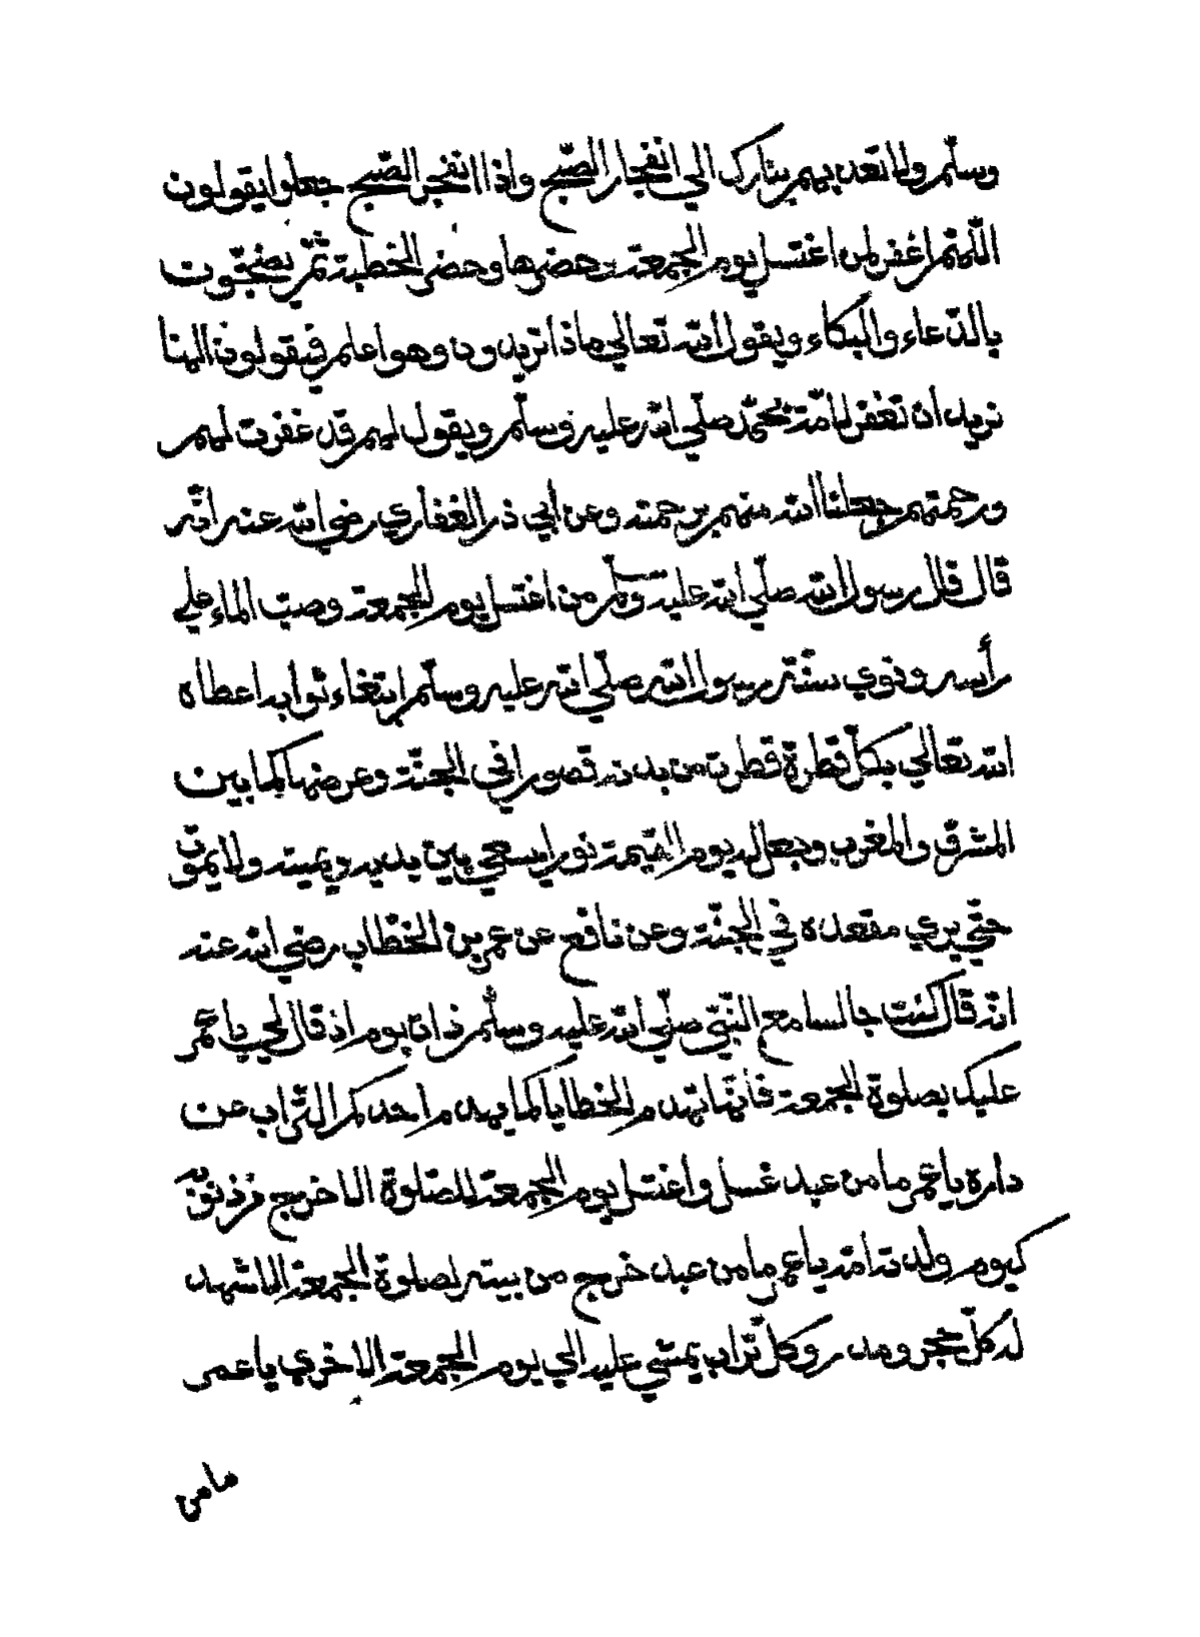 وسلّم ولا تعد بهم بتارك الي انفجار الصّبح واذا انفجر الصّبح جعلوا يقولون
اللّهمّ اغفر لمن اغتسل يوم الجمعة حضرها وحضر الخطبة ثمّ يضجّون
بالدّعاء والبكاء ويقول الله تعالي ماذا تريدون وهو اعلم فيقولون الهنا
نريد ان تغفر لامّة محمّد صلّي الله عليه وسلّم ويقول لهم قد غفرت لهم
ورحمتهم جعلنا الله منهم برحمته وعن ابي ذر الغفاري رضي الله عنه انّه
قال قال رسول الله صلّي الله عليه وسلّم من اغتسل يوم الجمعة وصبّ الماء علي
رأسه ونوي سنّة رسول الله صلّي الله عليه وسلّم ابتغاء ثوابه اعطاه
الله تعالي بكلّ قطرة قطرت من بدنه قصورا في الجنّة وعرضها كما بين
المشرق والمغرب وجعل له يوم القيمة نورا يسعي بين يديه ويمينه ولا يموت
حتّي يري مقعده في الجنّة وعن نافع عن عمر بن الخطّاب رضي الله عنه
انّه قال كنت جالسا مع النّبيّ صلّي الله عليه وسلّم ذات يوم اذ قال لي يا عمر
عليك بصلوة الجمعة فانّها تهدم الخطايا كما يهدم احدكم التّراب عن
داره يا عمر ما من عبد غسل واغتسل يوم الجمعة للصّلوة الا خرج من ذنوبه
كيوم ولدته امّه يا عمر ما من عبد خرج من بيته لصلوة الجمعة الا شهد
له كلّ حجر ومدر وكلّ تراب يمشي عليه الي يوم الجمعة الاخري يا عمر
ما من